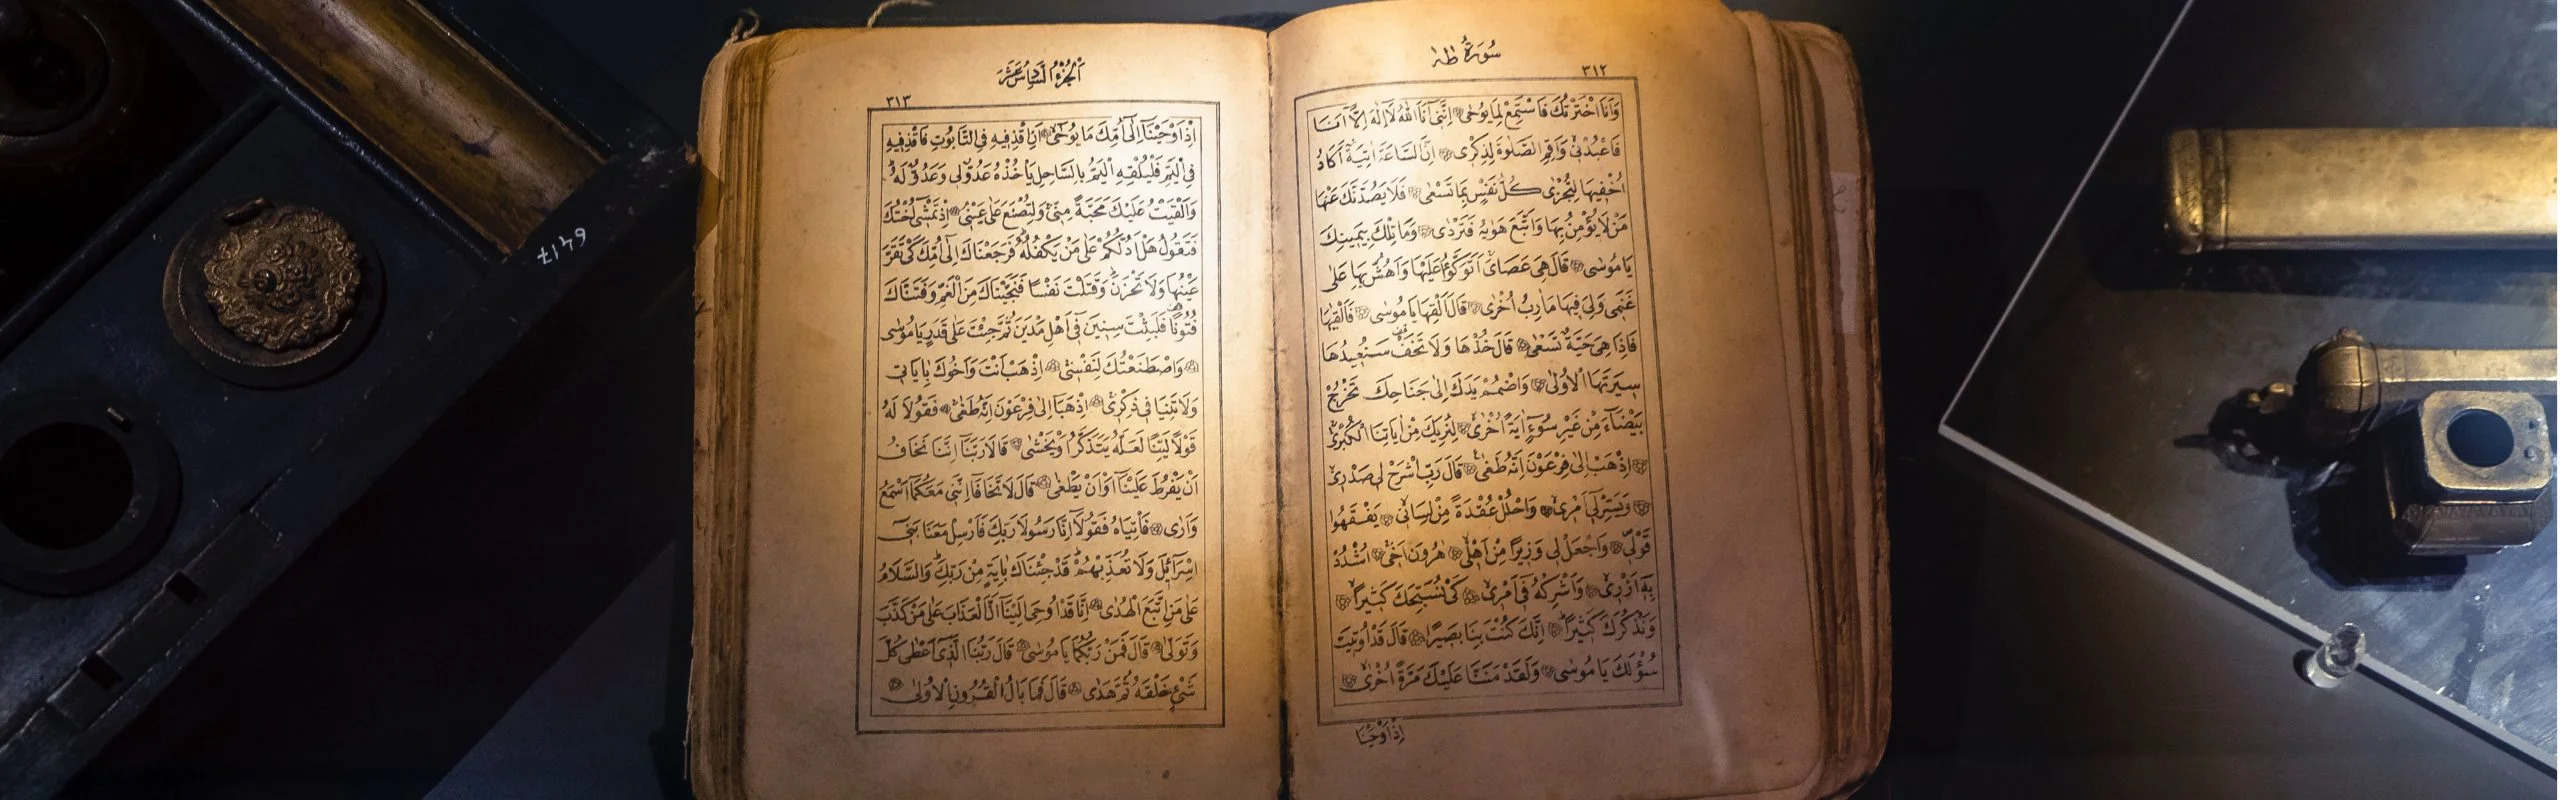 سُورَةُ طٰهٰ
٣١٢
وَاَنَا اخْتَرْتُكَ فَاسْتَمِعْ لِمَا يُوحٰى اِنَّنٓى اَنَا اللّٰهُ لَٓا اِلٰهَ اِلَّٓا اَنَا
فَاعْبُدْنٖى وَاَقِمِ الصَّلٰوةَ لِذِكْرٖى اِنَّ السَّاعَةَ اٰتِيَةٌ اَكَادُ
اُخْفٖيهَا لِتُجْزٰى كُلُّ نَفْسٍ بِمَا تَسْعٰى فَلَا يَصُدَّنَّكَ عَنْهَا
مَنْ لَا يُؤْمِنُ بِهَا وَاتَّبَعَ هَوٰيهُ فَتَرْدٰى وَمَا تِلْكَ بِيَمٖينِكَ
يَا مُوسٰى قَالَ هِىَ عَصَاىَ اَتَوَكَّؤُا عَلَيْهَا وَاَهُشُّ بِهَا عَلٰى
غَنَمٖى وَلِىَ فٖيهَا مَاٰرِبُ اُخْرٰى قَالَ اَلْقِهَا يَا مُوسٰى فَاَلْقٰيهَا
فَاِذَا هِىَ حَيَّةٌ تَسْعٰى قَالَ خُذْهَا وَلَا تَخَفْ سَنُعٖيدُهَا
سٖيرَتَهَا الْاُولٰى وَاضْمُمْ يَدَكَ اِلٰى جَنَاحِكَ تَخْرُجْ
بَيْضَٓاءَ مِنْ غَيْرِ سُٓوءٍ اٰيَةً اُخْرٰى لِنُرِيَكَ مِنْ اٰيَاتِنَا الْكُبْرٰى
اِذْهَبْ اِلٰى فِرْعَوْنَ اِنَّهُ طَغٰى قَالَ رَبِّ اشْرَحْ لٖى صَدْرٖى
وَيَسِّرْ لٖٓى اَمْرٖى وَاحْلُلْ عُقْدَةً مِنْ لِسَانٖى يَفْقَهُوا
قَوْلٖى وَاجْعَلْ لٖى وَزٖيرًا مِنْ اَهْلٖى هٰرُونَ اَخٖى اُشْدُدْ
بِهٖٓ اَزْرٖى وَاَشْرِكْهُ فٖٓى اَمْرٖى كَىْ نُسَبِّحَكَ كَثٖيرًا
وَنَذْكُرَكَ كَثٖيرًا اِنَّكَ كُنْتَ بِنَا بَصٖيرًا قَالَ قَدْ اُوتٖيتَ
سُؤْلَكَ يَا مُوسٰى وَلَقَدْ مَنَنَّا عَلَيْكَ مَرَّةً اُخْرٰى
اِذْ اَوْحَيْنَا
اَلْجُزْءُ السَّادِسُ عَشَرَ
٣١٣
اِذْ اَوْحَيْنَٓا اِلٰٓى اُمِّكَ مَا يُوحٰى اَنِ اقْذِفٖيهِ فِى التَّابُوتِ فَاقْذِفٖيهِ
فِى الْيَمِّ فَلْيُلْقِهِ الْيَمُّ بِالسَّاحِلِ يَأْخُذْهُ عَدُوٌّ لٖى وَعَدُوٌّ لَهُ
وَاَلْقَيْتُ عَلَيْكَ مَحَبَّةً مِنّٖى وَلِتُصْنَعَ عَلٰى عَيْنٖى اِذْ تَمْشٖٓى اُخْتُكَ
فَتَقُولُ هَلْ اَدُلُّكُمْ عَلٰى مَنْ يَكْفُلُهُ فَرَجَعْنَاكَ اِلٰٓى اُمِّكَ كَىْ تَقَرَّ
عَيْنُهَا وَلَا تَحْزَنَ وَقَتَلْتَ نَفْسًا فَنَجَّيْنَاكَ مِنَ الْغَمِّ وَفَتَنَّاكَ
فُتُونًا فَلَبِثْتَ سِنٖينَ فٖٓى اَهْلِ مَدْيَنَ ثُمَّ جِئْتَ عَلٰى قَدَرٍ يَا مُوسٰى
وَاصْطَنَعْتُكَ لِنَفْسٖى اِذْهَبْ اَنْتَ وَاَخُوكَ بِاٰيَاتٖى
وَلَا تَنِيَا فٖى ذِكْرٖى اِذْهَبَٓا اِلٰى فِرْعَوْنَ اِنَّهُ طَغٰى فَقُولَا لَهُ
قَوْلًا لَيِّنًا لَعَلَّهُ يَتَذَكَّرُ اَوْ يَخْشٰى قَالَا رَبَّنَٓا اِنَّنَا نَخَافُ
اَنْ يَفْرُطَ عَلَيْنَٓا اَوْ اَنْ يَطْغٰى قَالَ لَا تَخَافَٓا اِنَّنٖى مَعَكُمَٓا اَسْمَعُ
وَاَرٰى فَأْتِيَاهُ فَقُولَٓا اِنَّا رَسُولَا رَبِّكَ فَاَرْسِلْ مَعَنَا بَنٖٓى
اِسْرَٓائٖلَ وَلَا تُعَذِّبْهُمْ قَدْ جِئْنَاكَ بِاٰيَةٍ مِنْ رَبِّكَ وَالسَّلَامُ
عَلٰى مَنِ اتَّبَعَ الْهُدٰى اِنَّا قَدْ اُوحِىَ اِلَيْنَٓا اَنَّ الْعَذَابَ عَلٰى مَنْ كَذَّبَ
وَتَوَلّٰى قَالَ فَمَنْ رَبُّكُمَا يَا مُوسٰى قَالَ رَبُّنَا الَّذٖٓى اَعْطٰى كُلَّ
شَىْءٍ خَلْقَهُ ثُمَّ هَدٰى قَالَ فَمَا بَالُ الْقُرُونِ الْاُولٰى
6417